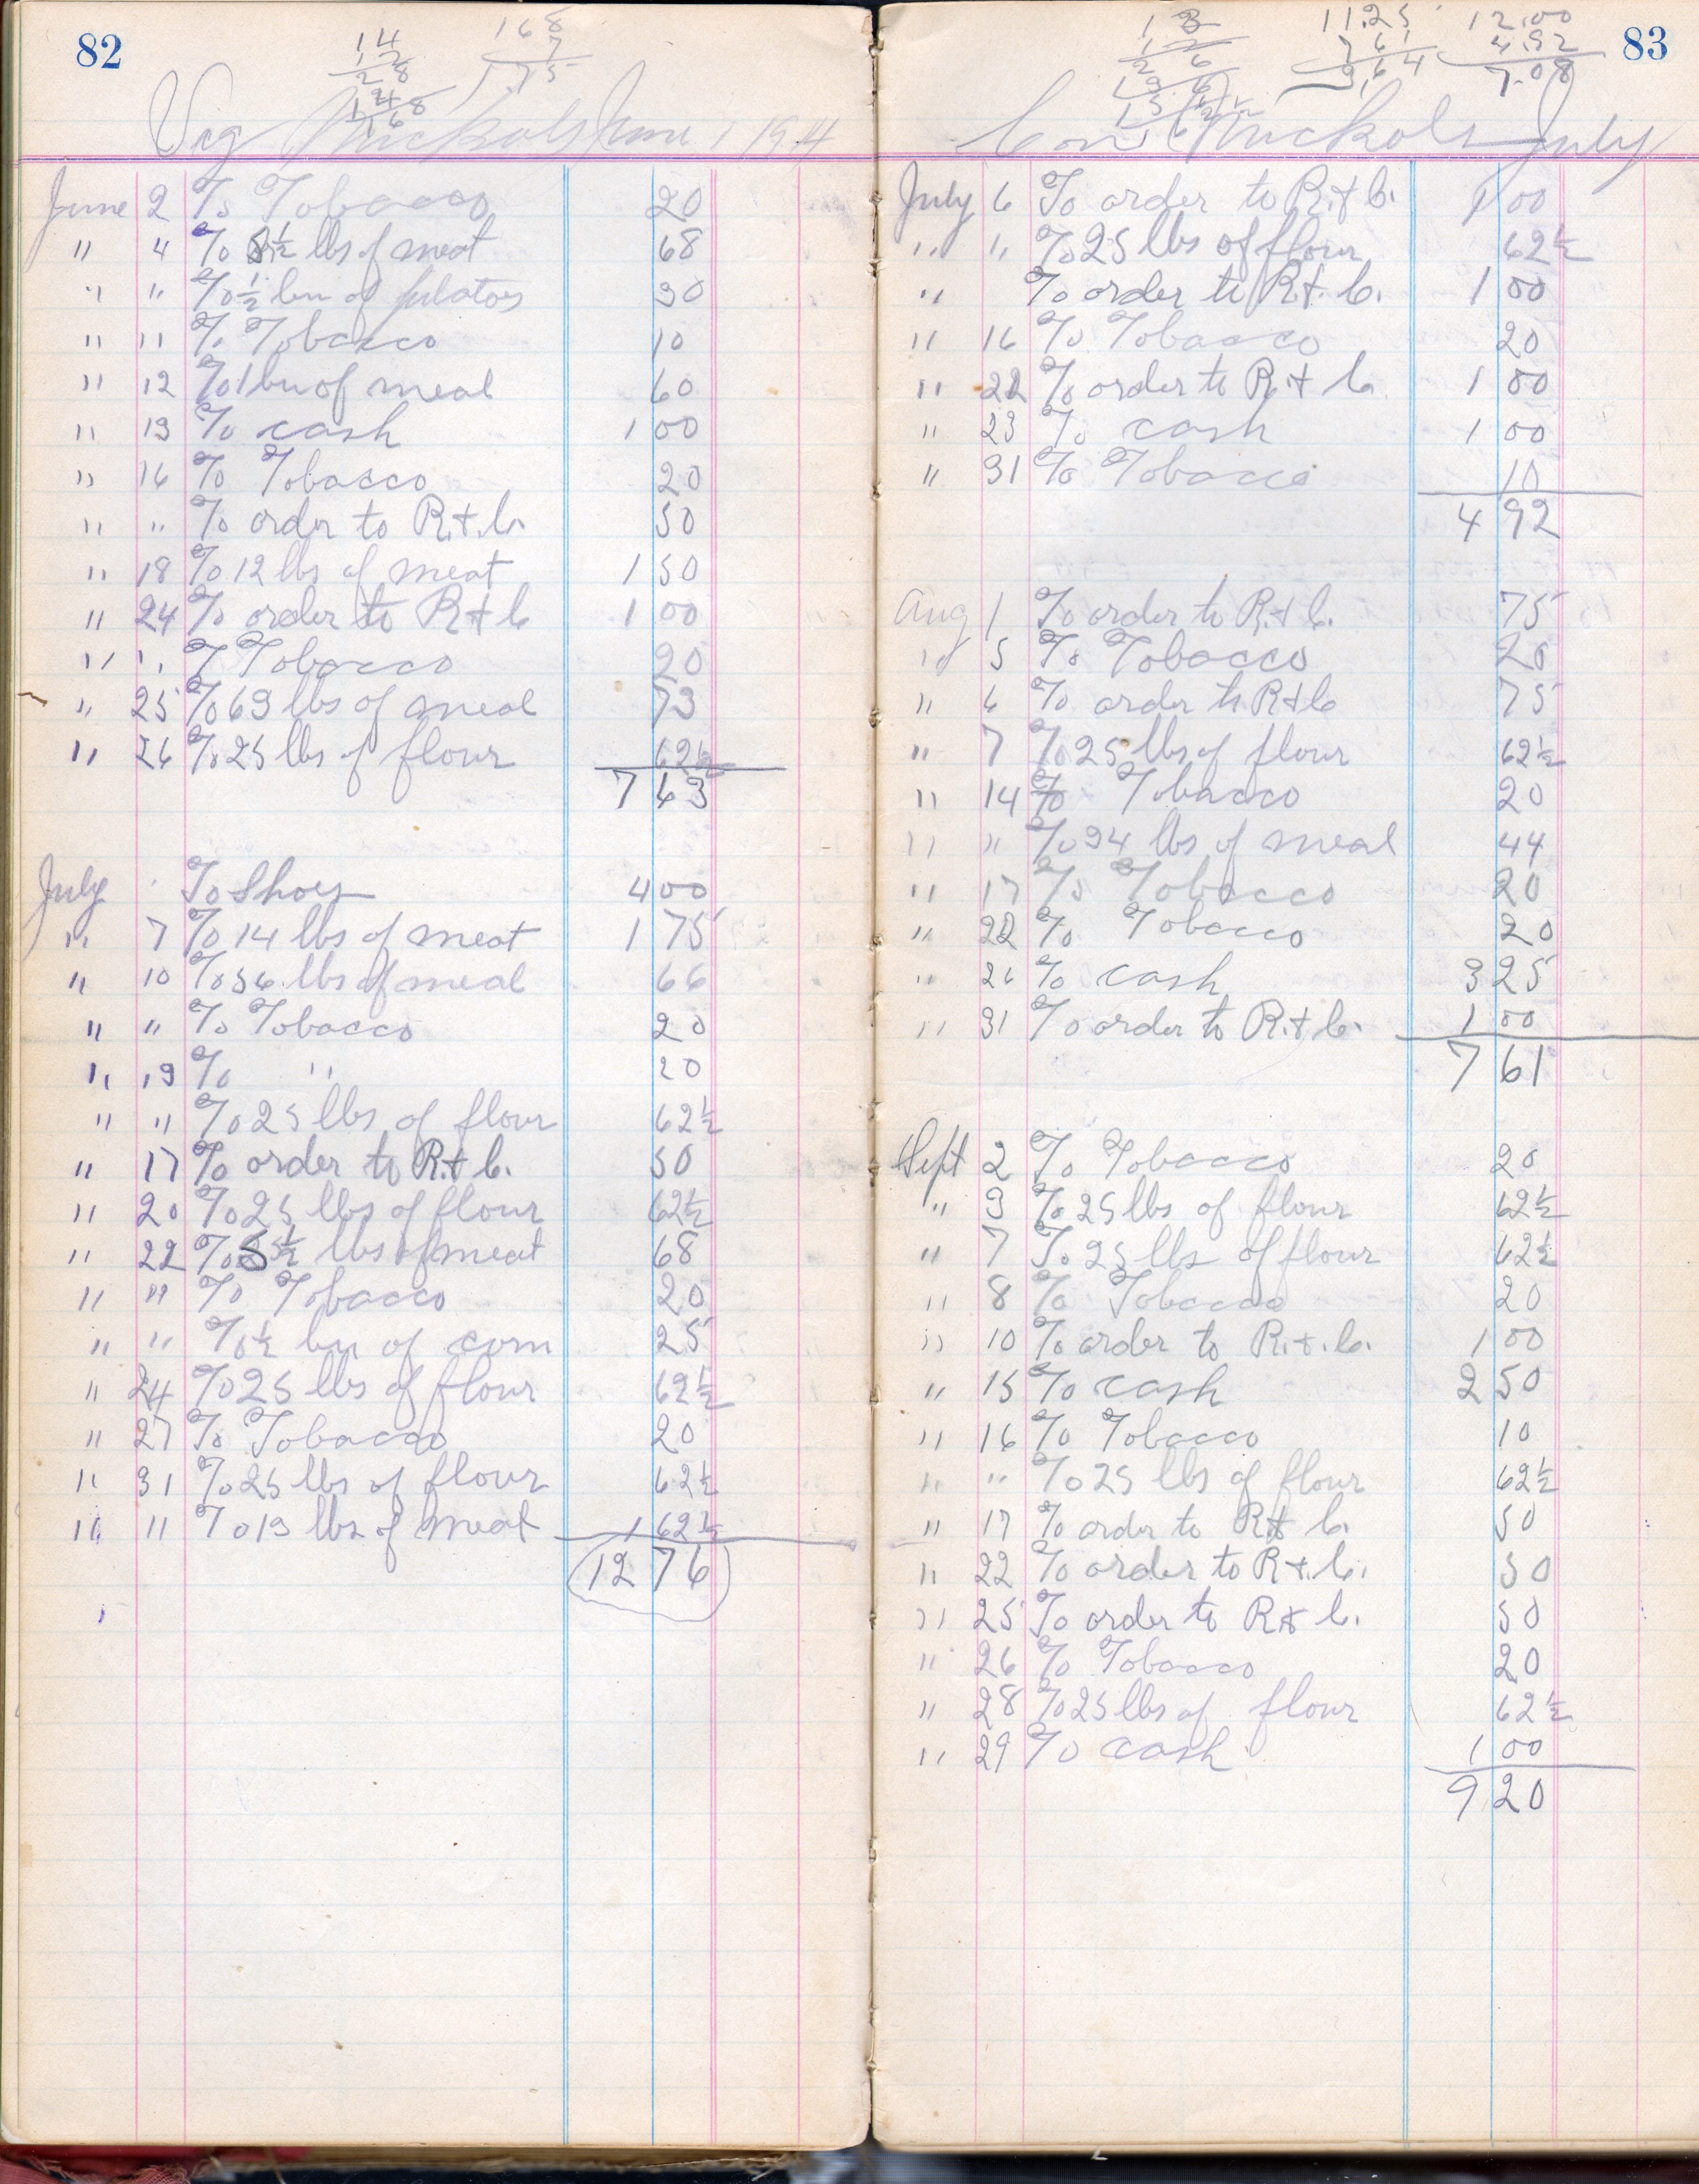 82
14
12
28
14
168
168
7
175
Nuckols June 1 1914
June 2 To Tobacco 20
" 4 To 5½ lbs of meat 68
" " To ½ bu of potatoes 90
" 11 To Tobacco 10
" 12 To 1 bu of meal 60
" 13 To cash 1 00
" 16 To Tobacco 20
" " To order to R. & C. 50
" 18 To 12 lbs of meat 1 50
" 24 To order to R & C 1 00
" " To Tobacco 20
" 25 To 63 lbs of meal 73
" 26 To 25 lbs of flour 62½
7 63
July To Shoes 4 00
" 7 To 14 lbs of meat 1 75
" 10 To 56 lbs of meal 66
" " To Tobacco 20
" 13 To " 20
" " To 25 lbs of flour 62½
" 17 To order to R. & C. 50
" 20 To 25 lbs of flour 62½
" 22 To 5½ lbs of meat 68
" " To Tobacco 20
" " To ½ bu of corn 25
" 24 To 25 lbs of flour 62½
" 27 To Tobacco 20
" 31 To 25 lbs of flour 62½
" 11 To 13 lbs of meat 1 62½
12 76
83
11.25
7 61
3.64
12.00
4.92
7.08
Con Nuckols July
July 6 To order to R. & C. 1 00
" " To 25 lbs of flour 62½
" To order to R. & C. 1 00
" 16 To Tobacco 20
" 22 To order to R. & C. 1 00
" 23 To cash 1 00
" 31 To Tobacco 10
4 92
Aug 1 To order to R. & C. 75
" 5 To Tobacco 20
" 6 To order to R & C 75
" 7 To 25 lbs of flour 62½
" 14 To Tobacco 20
" " To 34 lbs of meal 44
" 17 To Tobacco 20
" 22 To Tobacco 20
" 26 To cash 3 25
" 31 To order to R. & C. 1 00
7 61
Sept 2 To Tobacco 20
" 3 To 25 lbs of flour 62½
" 7 To 25 lbs of flour 62½
" 8 To Tobacco 20
" 10 To order to R. & C. 1 00
" 15 To cash 2 50
" 16 To Tobacco 10
" " To 25 lbs of flour 62½
" 17 To order to R & C. 50
" 22 To order to R & C. 50
" 25 To order to R & C. 50
" 26 To Tobacco 20
" 28 To 25 lbs of flour 62½
" 29 To cash 1 00
9 20